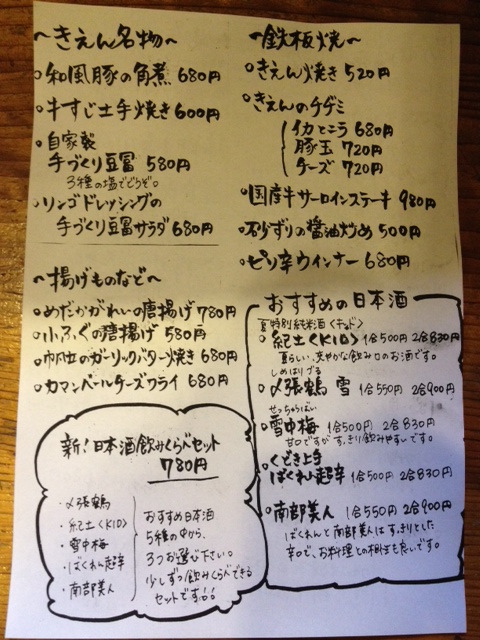 〜きえん名物〜
○和風豚の角煮 680円
○牛すじ土手焼き 600円
○自家製
手づくり豆冨 580円
3種の塩でどうぞ。
○リンゴドレッシングの
手づくり豆冨サラダ 680円
〜揚げものなど〜
○めだかがれいの唐揚げ 780円
○小ふぐの唐揚げ 580円
○帆立のガーリックバター焼き 680円
○カマンベールチーズフライ 680円
新!日本酒飲みくらべセット
780円
・〆張鶴
・紀土〈KID〉
・雪中梅
・ばくれん超辛
・南部美人
おすすめ日本酒
5種の中から、
3つお選び下さい。
少しずつ飲みくらべできる
セットです!!
〜鉄板焼〜
○きえん焼き 520円
○きえんのチヂミ
イカとニラ 680円
豚玉 720円
チーズ 720円
○国産牛サーロインステーキ 980円
○砂ずりの醤油炒め 500円
○ピリ辛ウインナー 680円
おすすめの日本酒
夏特別純米酒〈キッド〉
○紀土〈KID〉 1合500円 2合830円
夏らしい、爽やかな飲み口のお酒です。
しめはりづる
○〆張鶴 雪 1合550円 2合900円
せっちゅうばい
○雪中梅 1合500円 2合830円
甘口ですがすっきり飲みやすいです。
○くどき上手
ばくれん超辛 1合500円 2合830円
○南部美人 1合550円 2合900円
ばくれんと南部美人はすっきりとした
辛口で、お料理との相性も良いです。